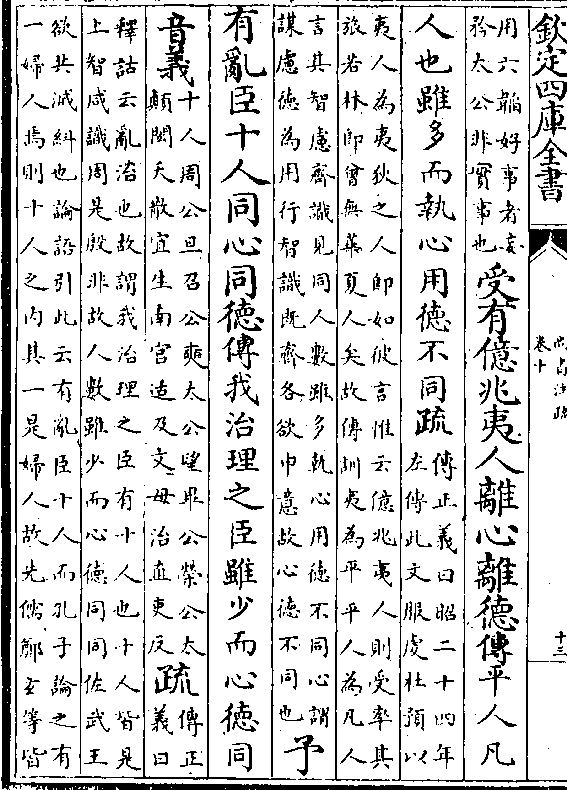 欽定四庫全書
卷十
尚書注疏
十三
用六韜好事者妄
矜太公非實事也
受有億兆夷人離心離德傳平人凡
人也雖多而執心用德不同疏
傳正義曰昭二十四年
左傳此文服虔杜預以
夷人為夷狄之人即如彼言惟云億兆夷人則受率其
旅若林即曾無華夏人矣故傳訓夷為平平人為凡人
言其智慮齊識見同人數雖多執心用德不同心謂
謀慮德為用行智識既齊各欲申意故心德不同也
予
有亂臣十人同心同德傳我治理之臣雖少而心德同
音義
十人周公旦召公奭太公望畢公榮公太
顛閎夭散宜生南宮适及文母治直吏反
疏
傳正
義曰
釋詁云亂治也故謂我治理之臣有十人也十人皆是
上智咸識周是殷非故人數雖少而心德同同佐武王
欲共滅紂也論語引此云有亂臣十人而孔子論之有
一婦人焉則十人之内其一是婦人故先儒鄭玄等皆